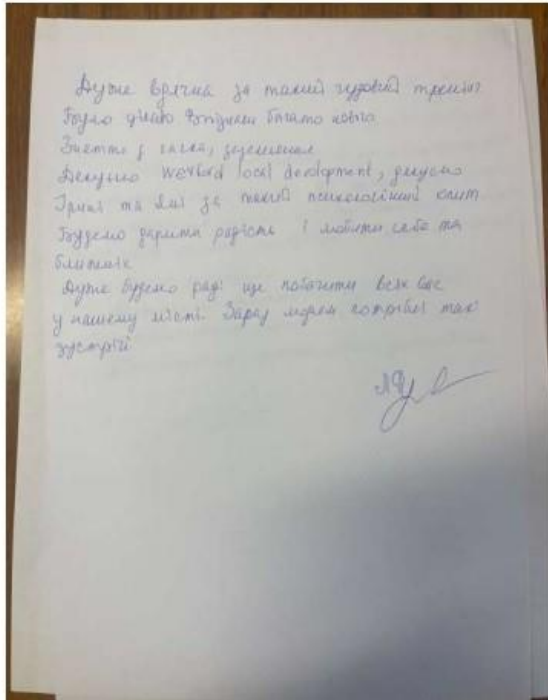 Дуже вдячна за такий чудовий тренінг
Було цікаво, дізнались багато нового
Зняття з
Дякуємо Wexford local development, дякуємо
Ірині та Яні за такий психологічний
Будемо дарити радість і любити себе та
ближніх
Дуже будемо раді ще побачити всіх вас
у нашому місті. Зараз людям потрібні такі
зустрічі